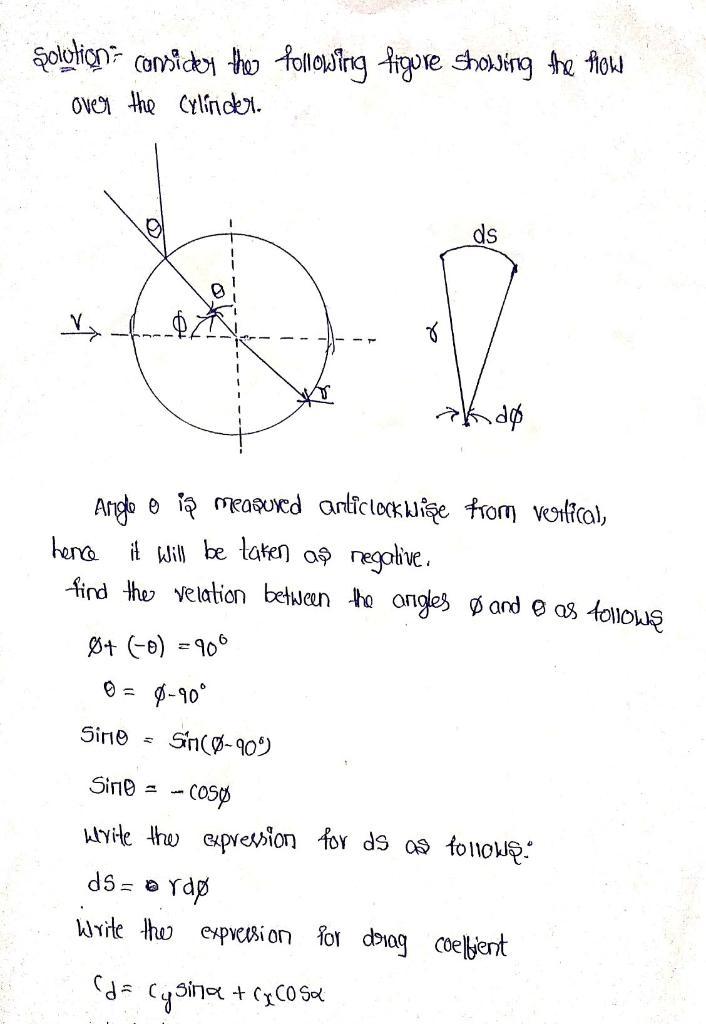 Solution:- consider the following figure showing the flow
over the cylinder.
θ
ds
θ
V
ϕ
r
r
dϕ
Angle θ is measured anticlockwise from vertical,
hence it will be taken as negative.
find the relation between the angles ϕ and θ as follows
ϕ+ (-θ) = 90°
θ = ϕ-90°
Sinθ = Sin(ϕ-90°)
Sinθ = - cosϕ
Write the expression for ds as follows:
ds = rdϕ
Write the expression for drag coefficient
Cd = Cy sinα + Cx COSα